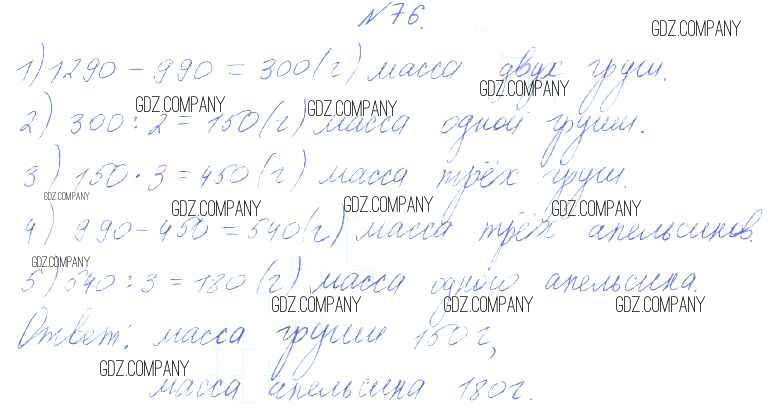 №76.
GDZ.COMPANY
1) 1290 - 990 = 300 (г) масса двух груш.
GDZ.COMPANY
GDZ.COMPANY GDZ.COMPANY
2) 300 : 2 = 150 (г) масса одной груши.
3) 150 · 3 = 450 (г) масса трёх груш.
GDZ.COMPANY GDZ.COMPANY GDZ.COMPANY GDZ.COMPANY
4) 990 - 450 = 540 (г) масса трёх апельсинов.
GDZ.COMPANY
5) 540 : 3 = 180 (г) масса одного апельсина.
GDZ.COMPANY GDZ.COMPANY GDZ.COMPANY
Ответ: масса груши 150 г,
GDZ.COMPANY
масса апельсина 180 г.